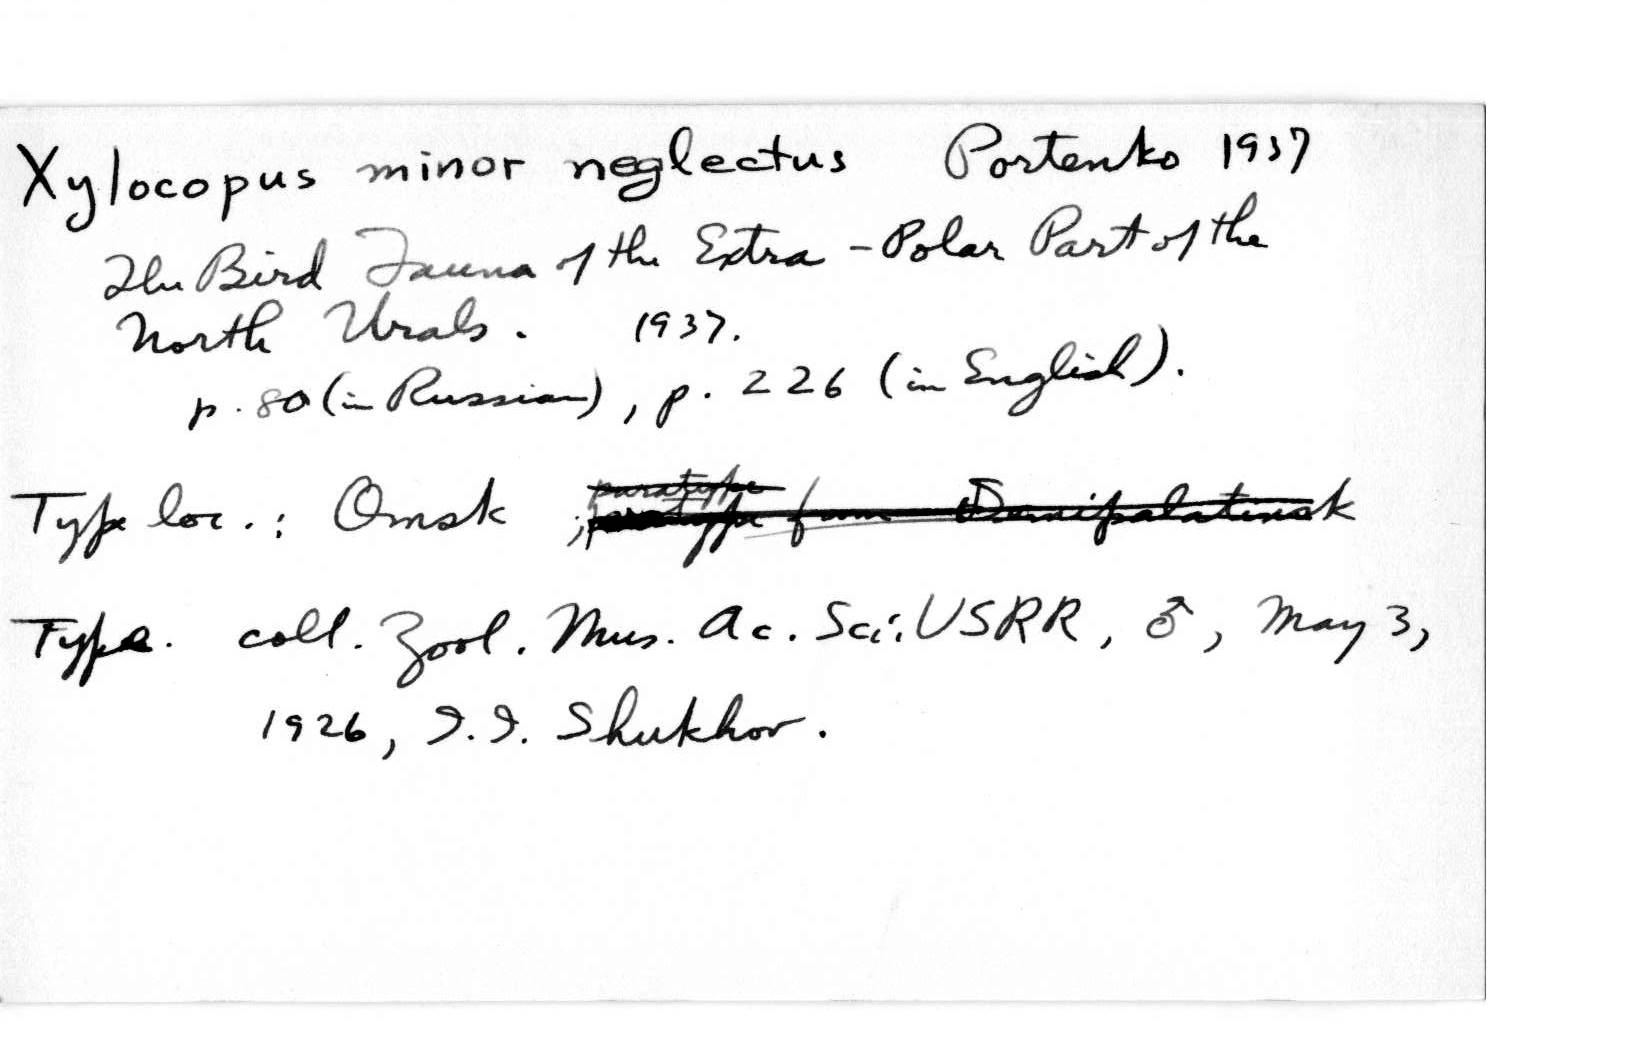 Xylocopus minor neglectus Portenko 1937
The Bird Fauna of the Extra-Polar Part of the
North Urals. 1937.
p. 80 (in Russian), p. 226 (in English).
paratype
Type loc.: Omsk ; paratype from Semipalatinsk
Type. coll. Zool. Mus. Ac. Sci. USRR, ♂, May 3,
1926, I.I. Shukhov.